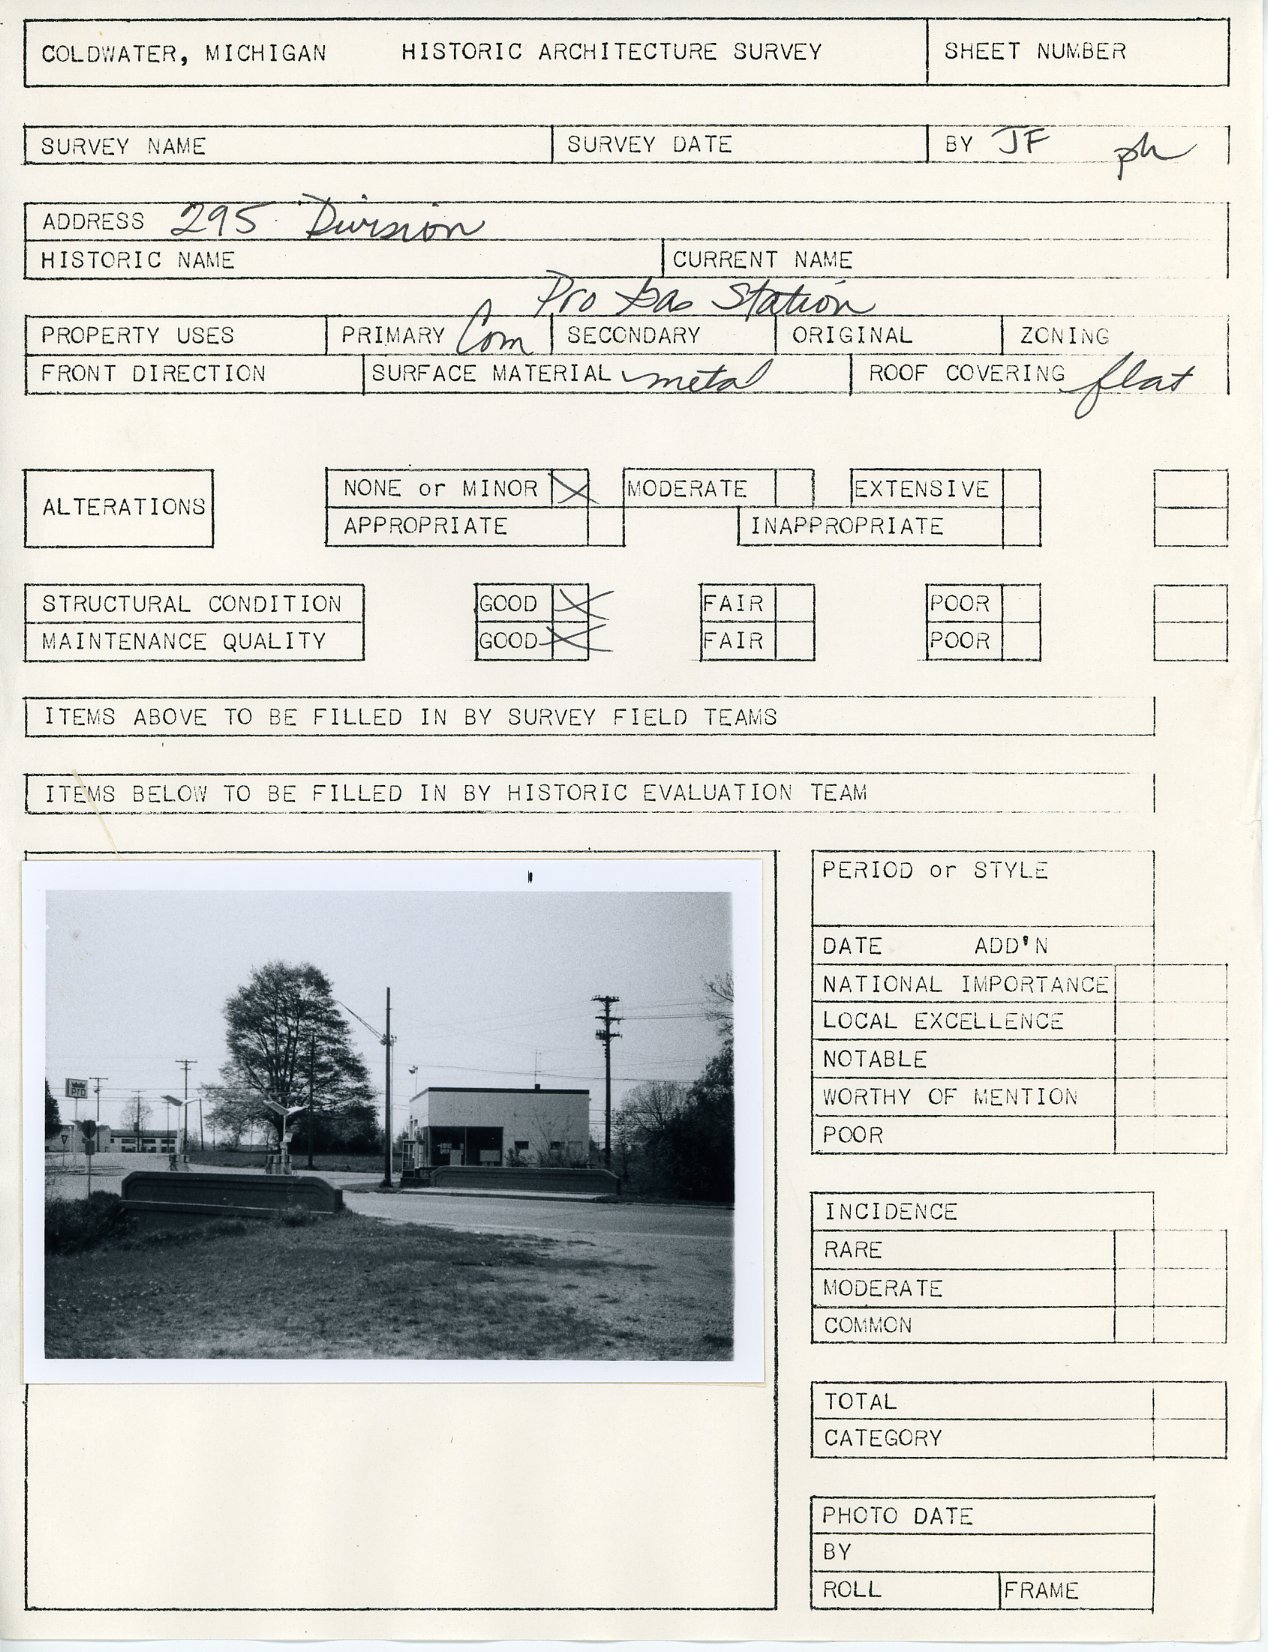 COLDWATER, MICHIGAN HISTORIC ARCHITECTURE SURVEY SHEET NUMBER
SURVEY NAME SURVEY DATE BY JF ph
ADDRESS 295 Division
HISTORIC NAME CURRENT NAME
Pro Gas Station
PROPERTY USES PRIMARY Com SECONDARY ORIGINAL ZONING
FRONT DIRECTION SURFACE MATERIAL metal ROOF COVERING flat
ALTERATIONS NONE or MINOR X MODERATE EXTENSIVE
APPROPRIATE INAPPROPRIATE
STRUCTURAL CONDITION GOOD X FAIR POOR
MAINTENANCE QUALITY GOOD X FAIR POOR
ITEMS ABOVE TO BE FILLED IN BY SURVEY FIELD TEAMS
ITEMS BELOW TO BE FILLED IN BY HISTORIC EVALUATION TEAM
PERIOD or STYLE
DATE ADD'N
NATIONAL IMPORTANCE
LOCAL EXCELLENCE
NOTABLE
WORTHY OF MENTION
POOR
INCIDENCE
RARE
MODERATE
COMMON
TOTAL
CATEGORY
PHOTO DATE
BY
ROLL FRAME